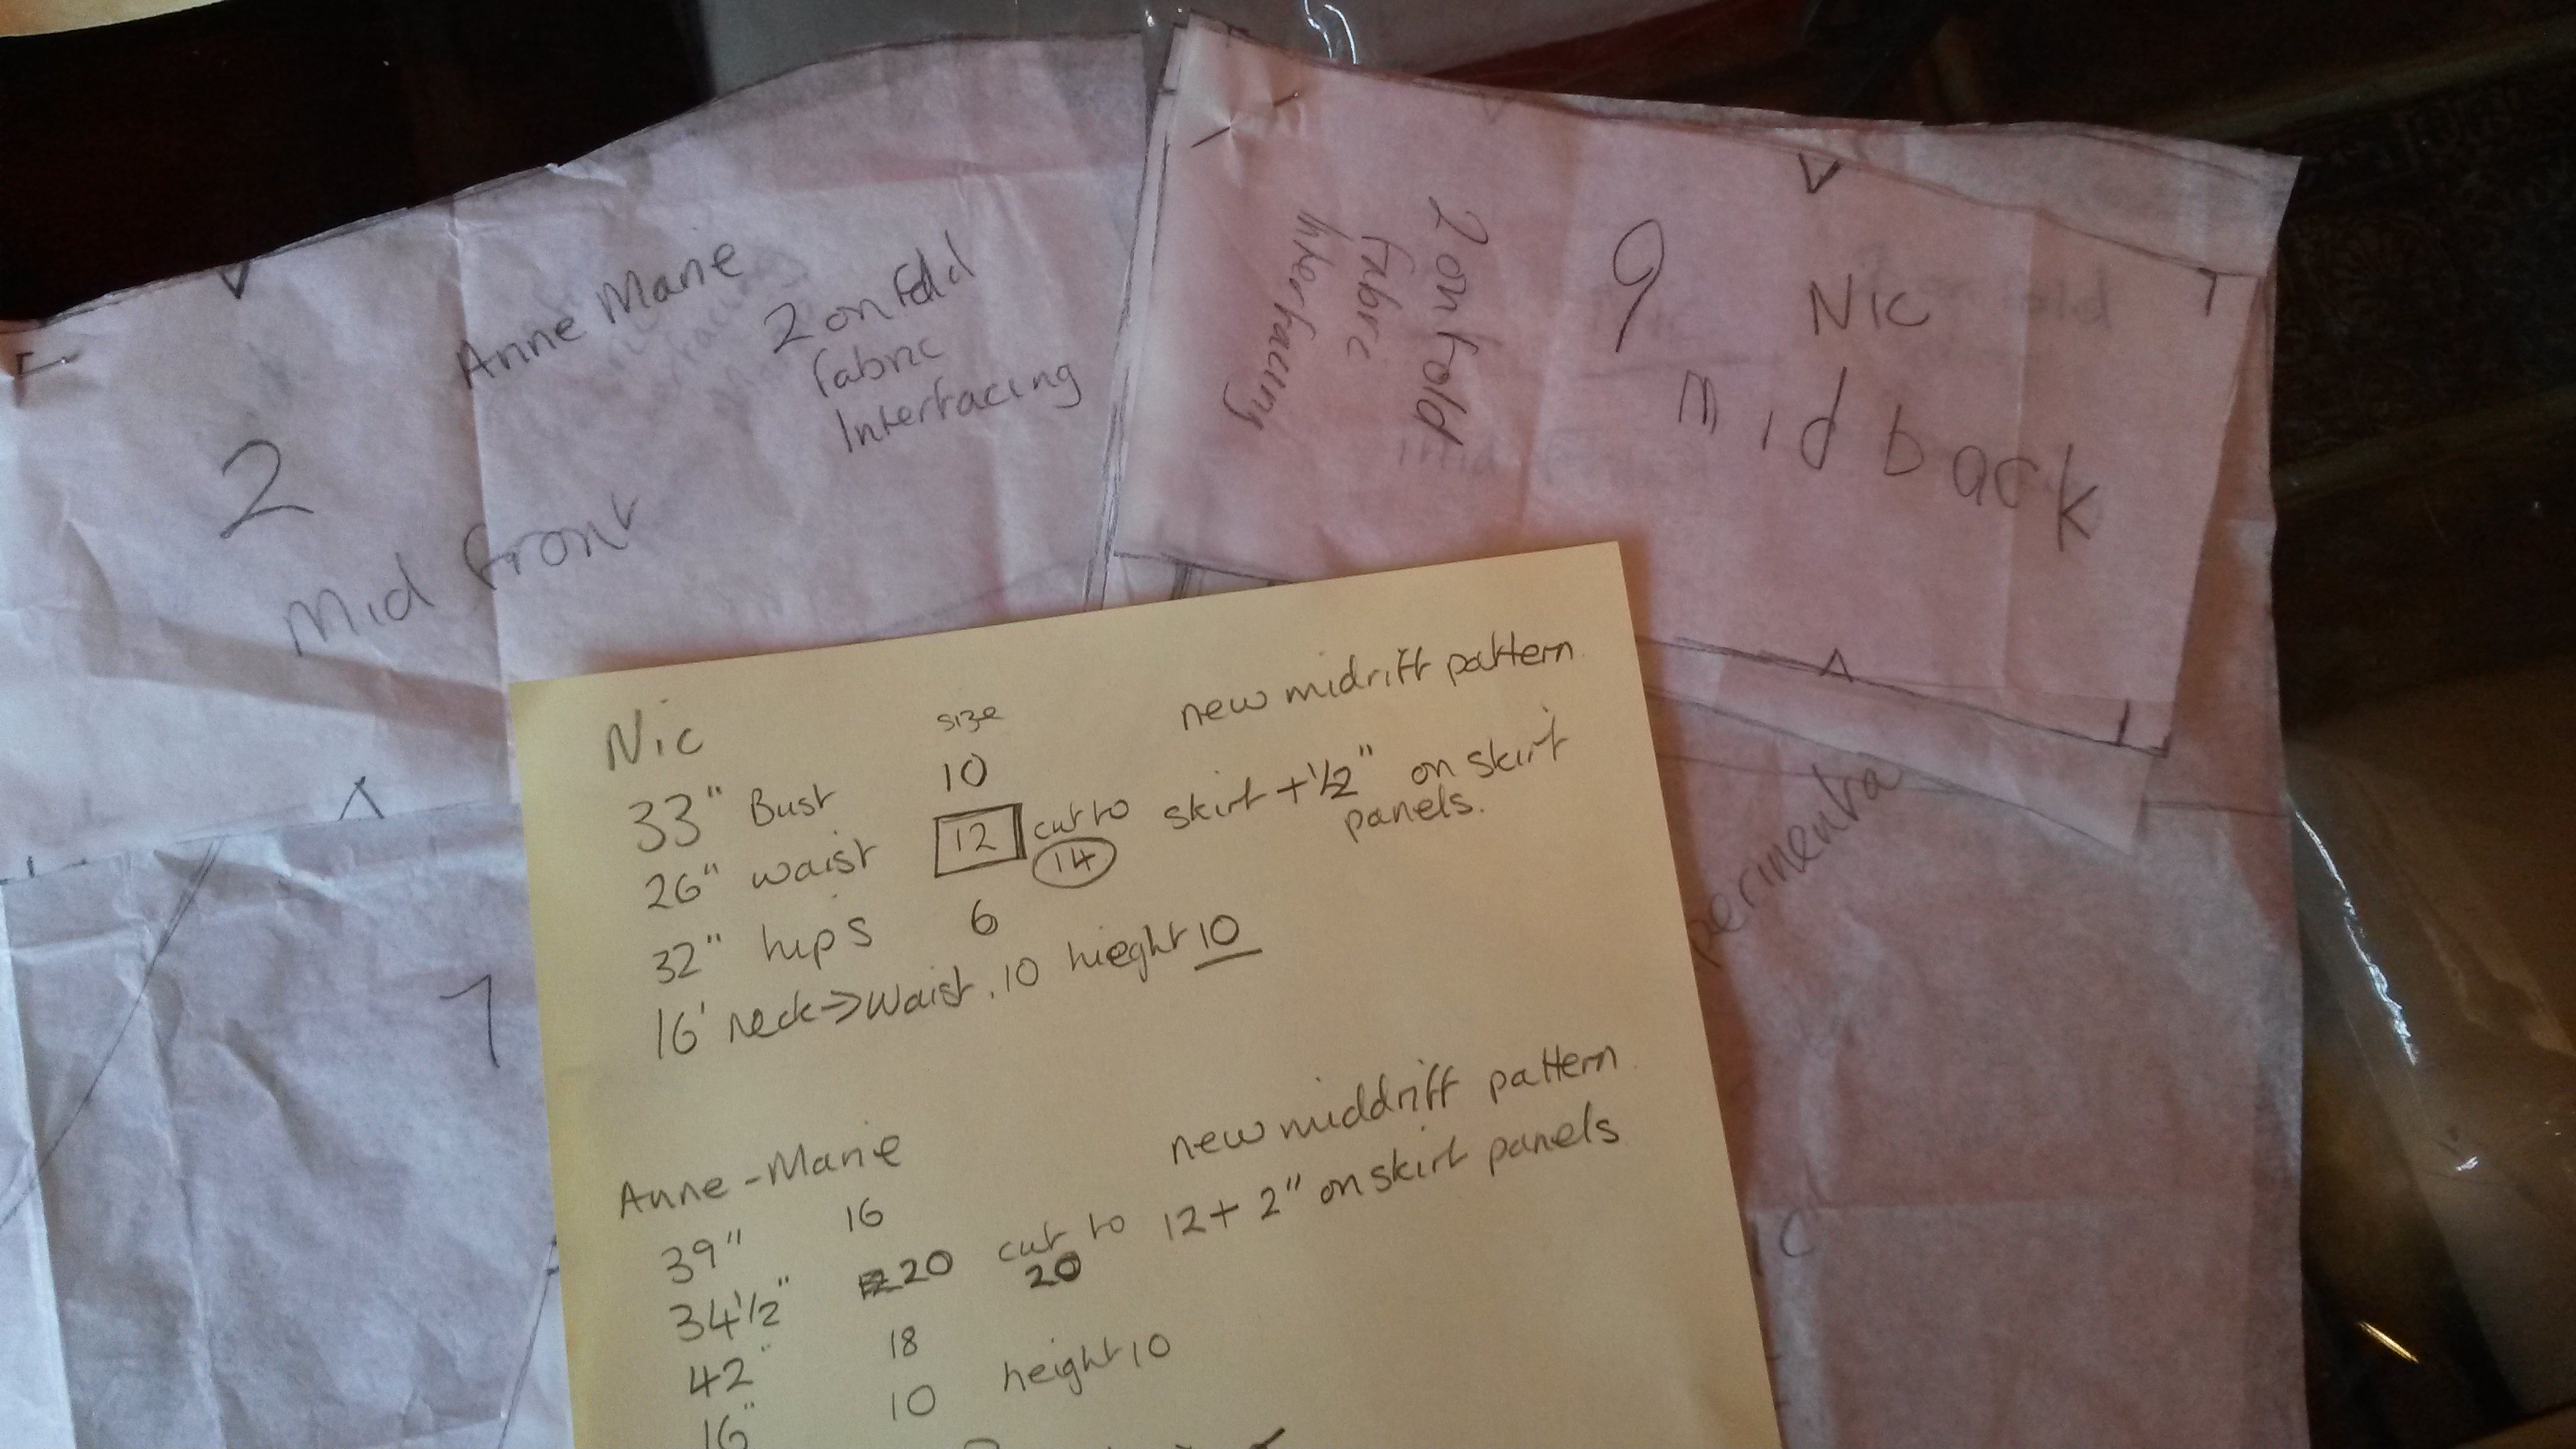 Anne Marie
2 on fold
fabric
Interfacing
2
Mid front
2 on fold
fabric
Interfacing
9
Nic
mid back
7
Nic size new midriff pattern
33" Bust 10
26" waist 12 cut to skirt + 1/2" on skirt
14 panels.
32" hips 6
16' neck → waist . 10 hieght 10
Anne - Marie new middriff pattern
39" 16
34 1/2" 20 cut to 12 + 2" on skirt panels
20
42" 18
16" 10 height 10